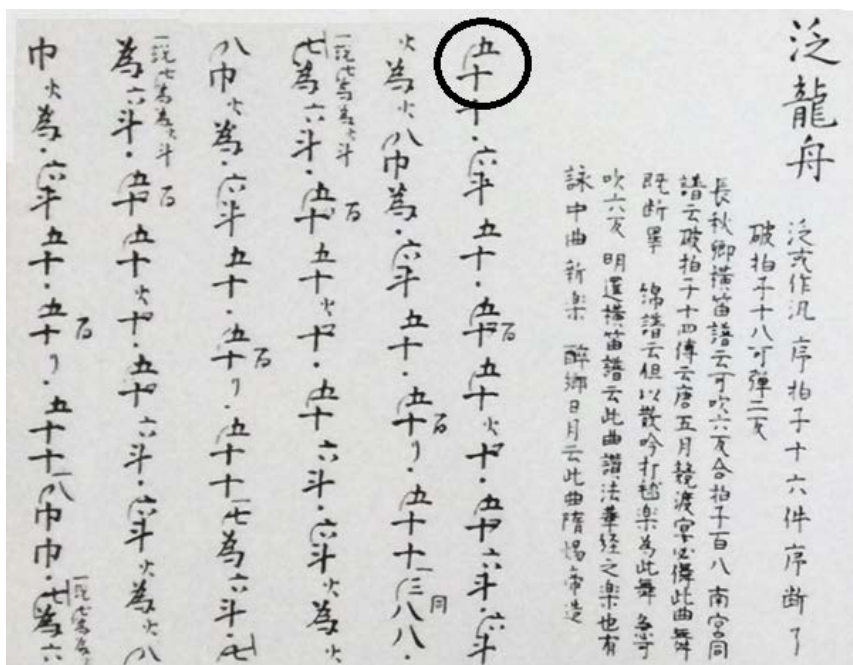 泛龍舟
泛或作汎 序拍子十六件序断了
破拍子十八可彈二反
長秋卿横笛譜云可吹六反合拍子百八 南宮同
譜云破拍子十四傳云唐五月競渡宴必儛此曲舞
既断畢 綿譜云但以散吟打毬樂為此舞 急可
吹六反 明暹横笛譜云此曲讃法華経之樂也有
詠中曲新樂 酔郷日月云此曲隋煬帝造
五十十・六斗五十・五十百五十火十・五十六斗・六斗
火為火八巾為・六斗五十・五十百リ・五十十一三同八八・
一説七為為火斗
七為六斗・五十百五十火十・五十六斗・六斗火為火
八巾火為・六斗五十・五十百リ・五十十一七為六斗・七
一説七為為火斗
為六斗・五十百五十火十・五十六斗・六斗火為火八
巾火為・六斗五十・五十百リ・五十十一八巾巾・七為六
一説七為為